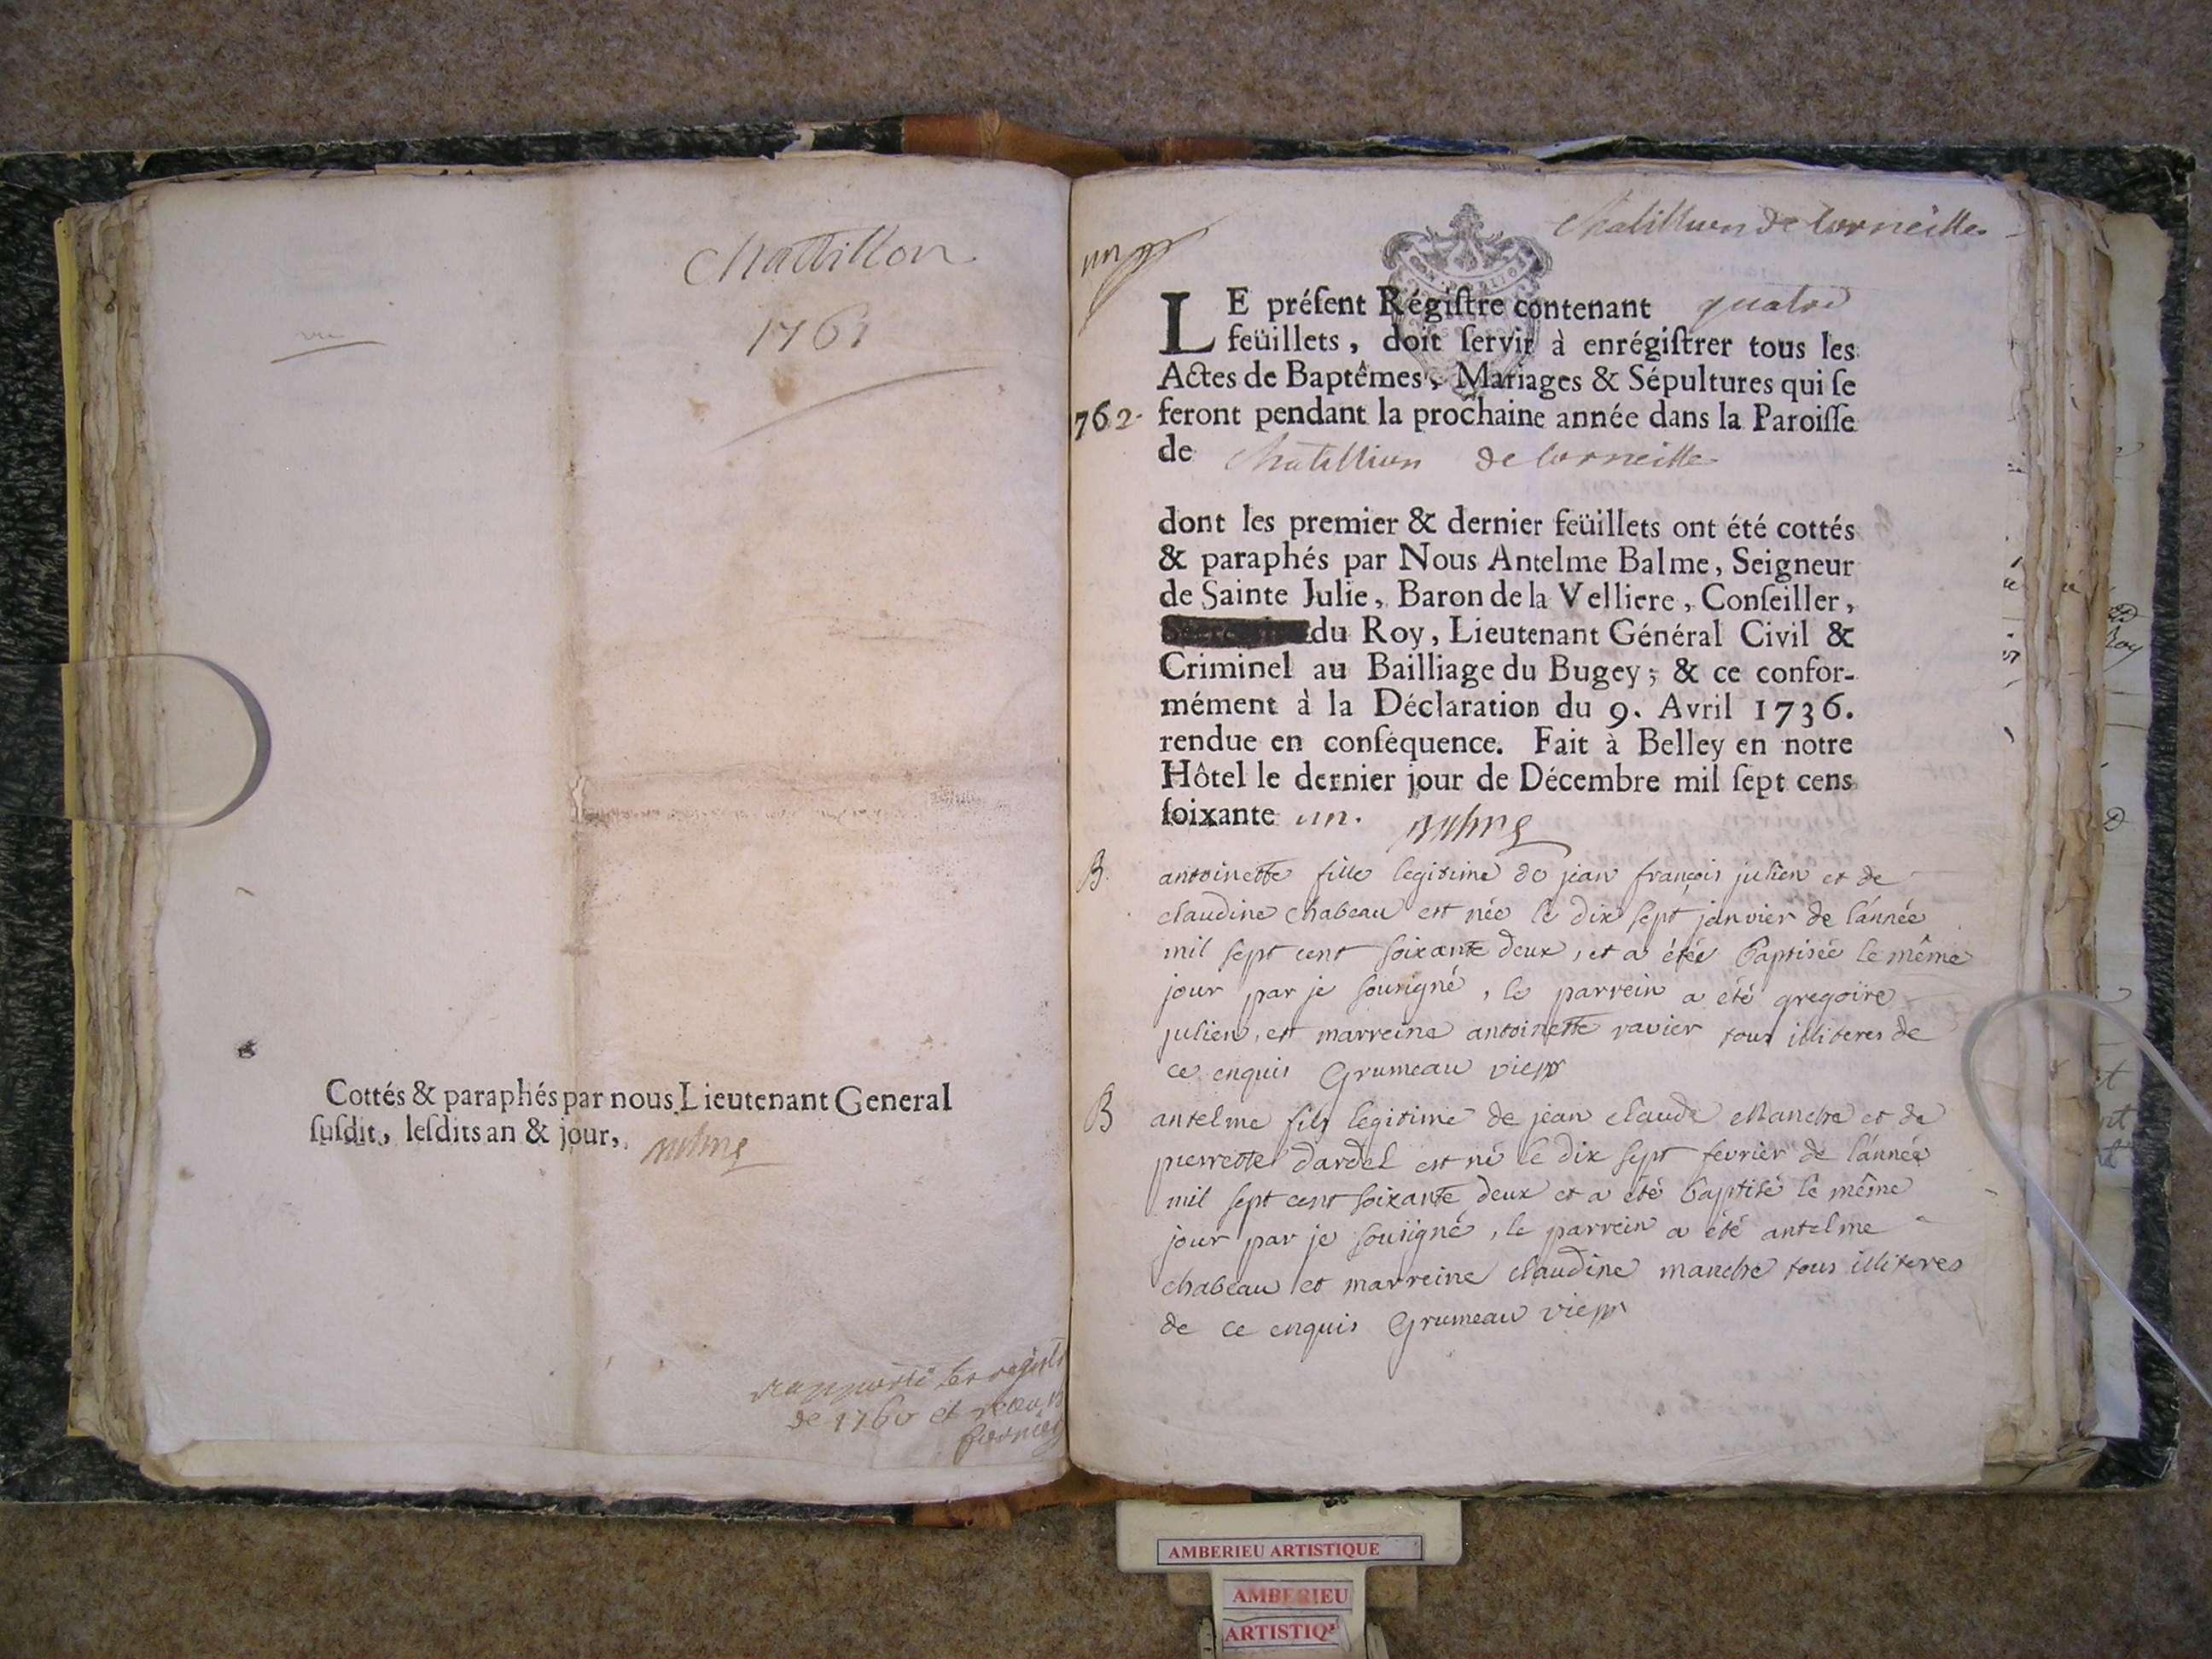 Chattillon
1761
Cottés & paraphés par nous Lieutenant General
ſuſdit, leſdits an & jour,
rapporté les regist
de 1760 et
un
Chatillion de Corneille
LE préſent Régiſtre contenant quatre
feüillets, doit ſervir à enrégiſtrer tous les
Actes de Baptêmes, Mariages & Sépultures qui ſe
762. feront pendant la prochaine année dans la Paroiſſe
de Chatillion de Corneille
dont les premier & dernier feüillets ont été cottés
& paraphés par Nous Antelme Balme, Seigneur
de Sainte Julie, Baron de la Velliere, Conſeiller,
du Roy, Lieutenant Général Civil &
Criminel au Bailliage du Bugey; & ce confor-
mément à la Déclaration du 9. Avril 1736.
rendue en conſéquence. Fait à Belley en notre
Hôtel le dernier jour de Décembre mil ſept cens
ſoixante un.
B. antoinette fille legitime de jean françois julien et de
claudine chabeau est née le dix sept janvier de l'année
mil sept cent soixante deux, et a étée baptisée le même
jour par je sousigné, le parrein a été gregoire
julien, et marreine antoinette ravier tous illiteres de
ce enquis Grumeau
B antelme fils legitime de jean claude Manche et de
pierrette dardel est né le dix sept fevrier de l'année
mil sept cent soixante deux et a été baptisé le même
jour par je sousigné, le parrein a été antelme
chabeau et marreine claudine manche tous illiteres
de ce enquis Grumeau
AMBERIEU ARTISTIQUE
AMBERIEU
ARTISTIQ